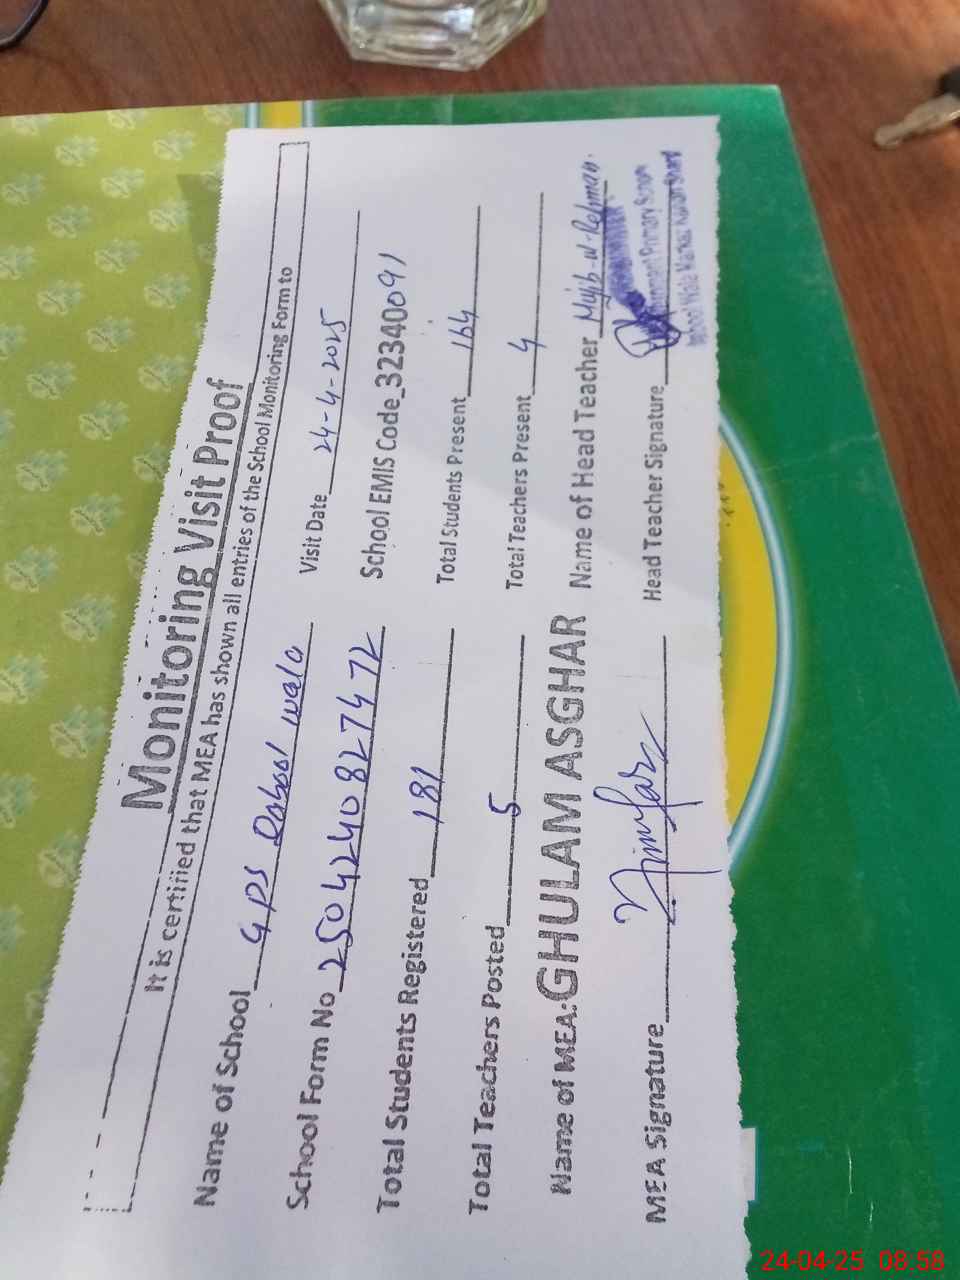 Monitoring Visit Proof
It is certified that MEA has shown all entries of the School Monitoring Form to
Name of School GPS Dabool wala Visit Date 24-4-2025
School Form No 2504240827472 School EMIS Code 32340091
Total Students Registered 181 Total Students Present 164
Total Teachers Posted 5 Total Teachers Present 4
Name of MEA: GHULAM ASGHAR Name of Head Teacher Mujib-ur-Rehman.
MEA Signature Head Teacher Signature
Primary School
Wala Markaz
24-04-25 08:58